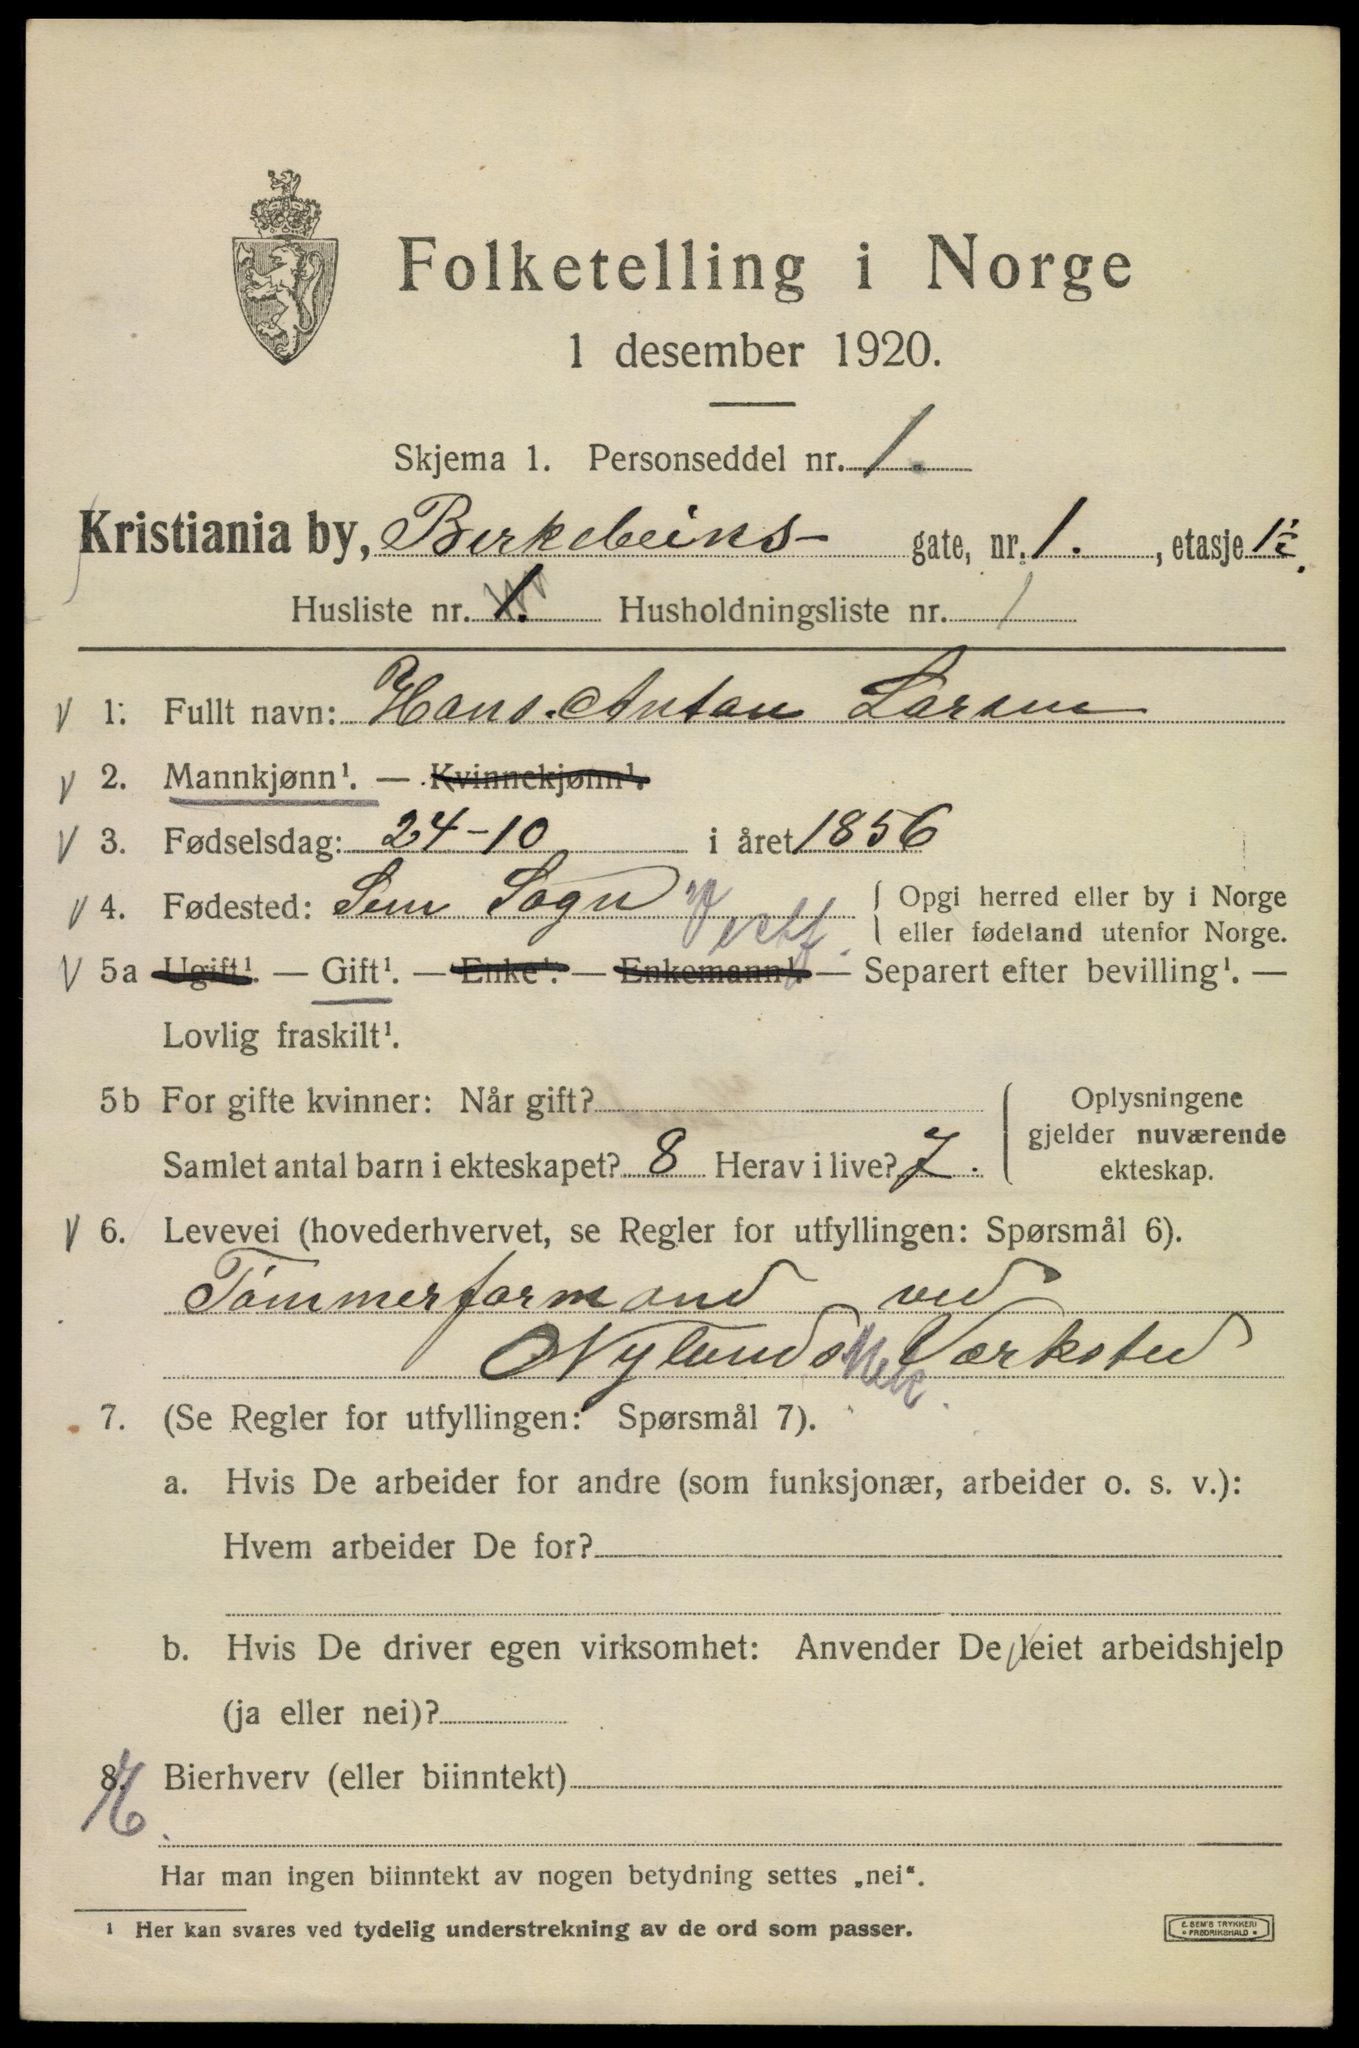 Folketelling i Norge
1 desember 1920.
Skjema 1. Personseddel nr. 1.
Kristiania by, Birkebeins- gate, nr. 1. , etasje 1ste.
Husliste nr. 1. Husholdningsliste nr. 1
1. Fullt navn: Hans Anton Larsen
2. Mannkjønn¹. — Kvinnekjønn¹.
3. Fødselsdag: 24-10 i året 1856
4. Fødested: Sem Sogn Vestf. Opgi herred eller by i Norge
eller fødeland utenfor Norge.
5a Ugift¹. — Gift¹. — Enke¹. — Enkemann¹. — Separert efter bevilling¹. —
Lovlig fraskilt¹.
5b For gifte kvinner: Når gift?
Samlet antal barn i ekteskapet? 8 Herav i live? 7.
Oplysningene
gjelder nuværende
ekteskap.
6. Levevei (hovederhvervet, se Regler for utfyllingen: Spørsmål 6).
Tømmerformand ved
Nylands Mek. Værksted
7. (Se Regler for utfyllingen: Spørsmål 7).
a. Hvis De arbeider for andre (som funksjonær, arbeider o. s. v.):
Hvem arbeider De for?
b. Hvis De driver egen virksomhet: Anvender De leiet arbeidshjelp
(ja eller nei)?
8. Bierhverv (eller biinntekt)
Har man ingen biinntekt av nogen betydning settes „nei“.
¹ Her kan svares ved tydelig understrekning av de ord som passer.
E. SEM'S TRYKKERI
FREDRIKSHALD